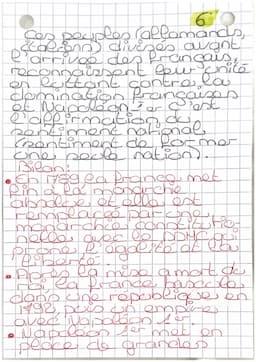 6
Ces peuples (allemands,
italiens) divisés avant
l'arrivée des français,
reconnaissent leur unité
en luttant contre la
domination françaises
et Napoléon 1er c'est
l'affirmation du
sentiment national
(sentiment de former
une seule nation).
Bilan:
• En 1789 la France met
fin à la monarchie
absolue et elle est
remplacé par une
monarchie constitution-
nelle avec la DDHC qui
l'égalité et la
liberté.
• Après la mise a mort du
roi, la france bascule
dans une république en
1792 puis un empire
avec Napoléon 1er.
• Napoléon 1er met en
place de grandes